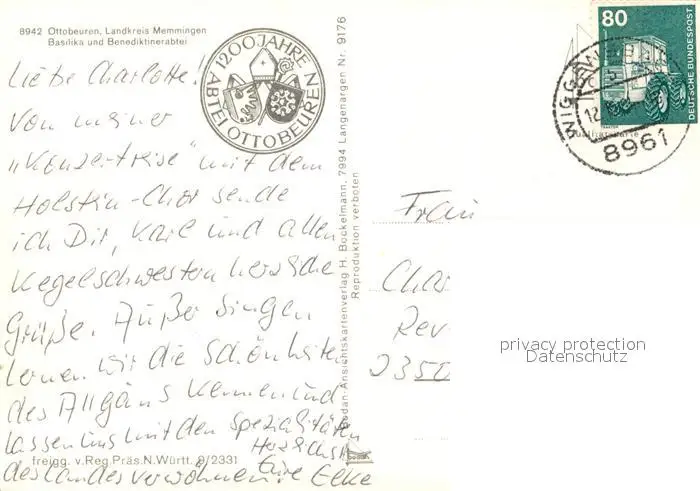 8942 Ottobeuren, Landkreis Memmingen
Basilika und Benediktinerabtei
1200 JAHRE
ABTEI OTTOBEUREN
Liebe Charlotte!
Von meiner
„Konzertreise" mit dem
Holstein-Chor sende
ich Dir, Karl und allen
Kegelschwestern herzliche
Grüße. Außer Singen
lernen wir die Schönheiten
des Allgäus kennen und
lassen uns mit den Spezialitäten
des Landes verwöhnen.
Herzlichst
Eure Elke
freigg. v. Reg. Präs. N. Württ. 9/2331
Bodan-Ansichtskartenverlag H. Bockelmann, 7994 Langenargen Nr. 9176
Reproduktion verboten
80
DEUTSCHE BUNDESPOST
8961
Frau
Char
Rev
2350
privacy protection
Datenschutz